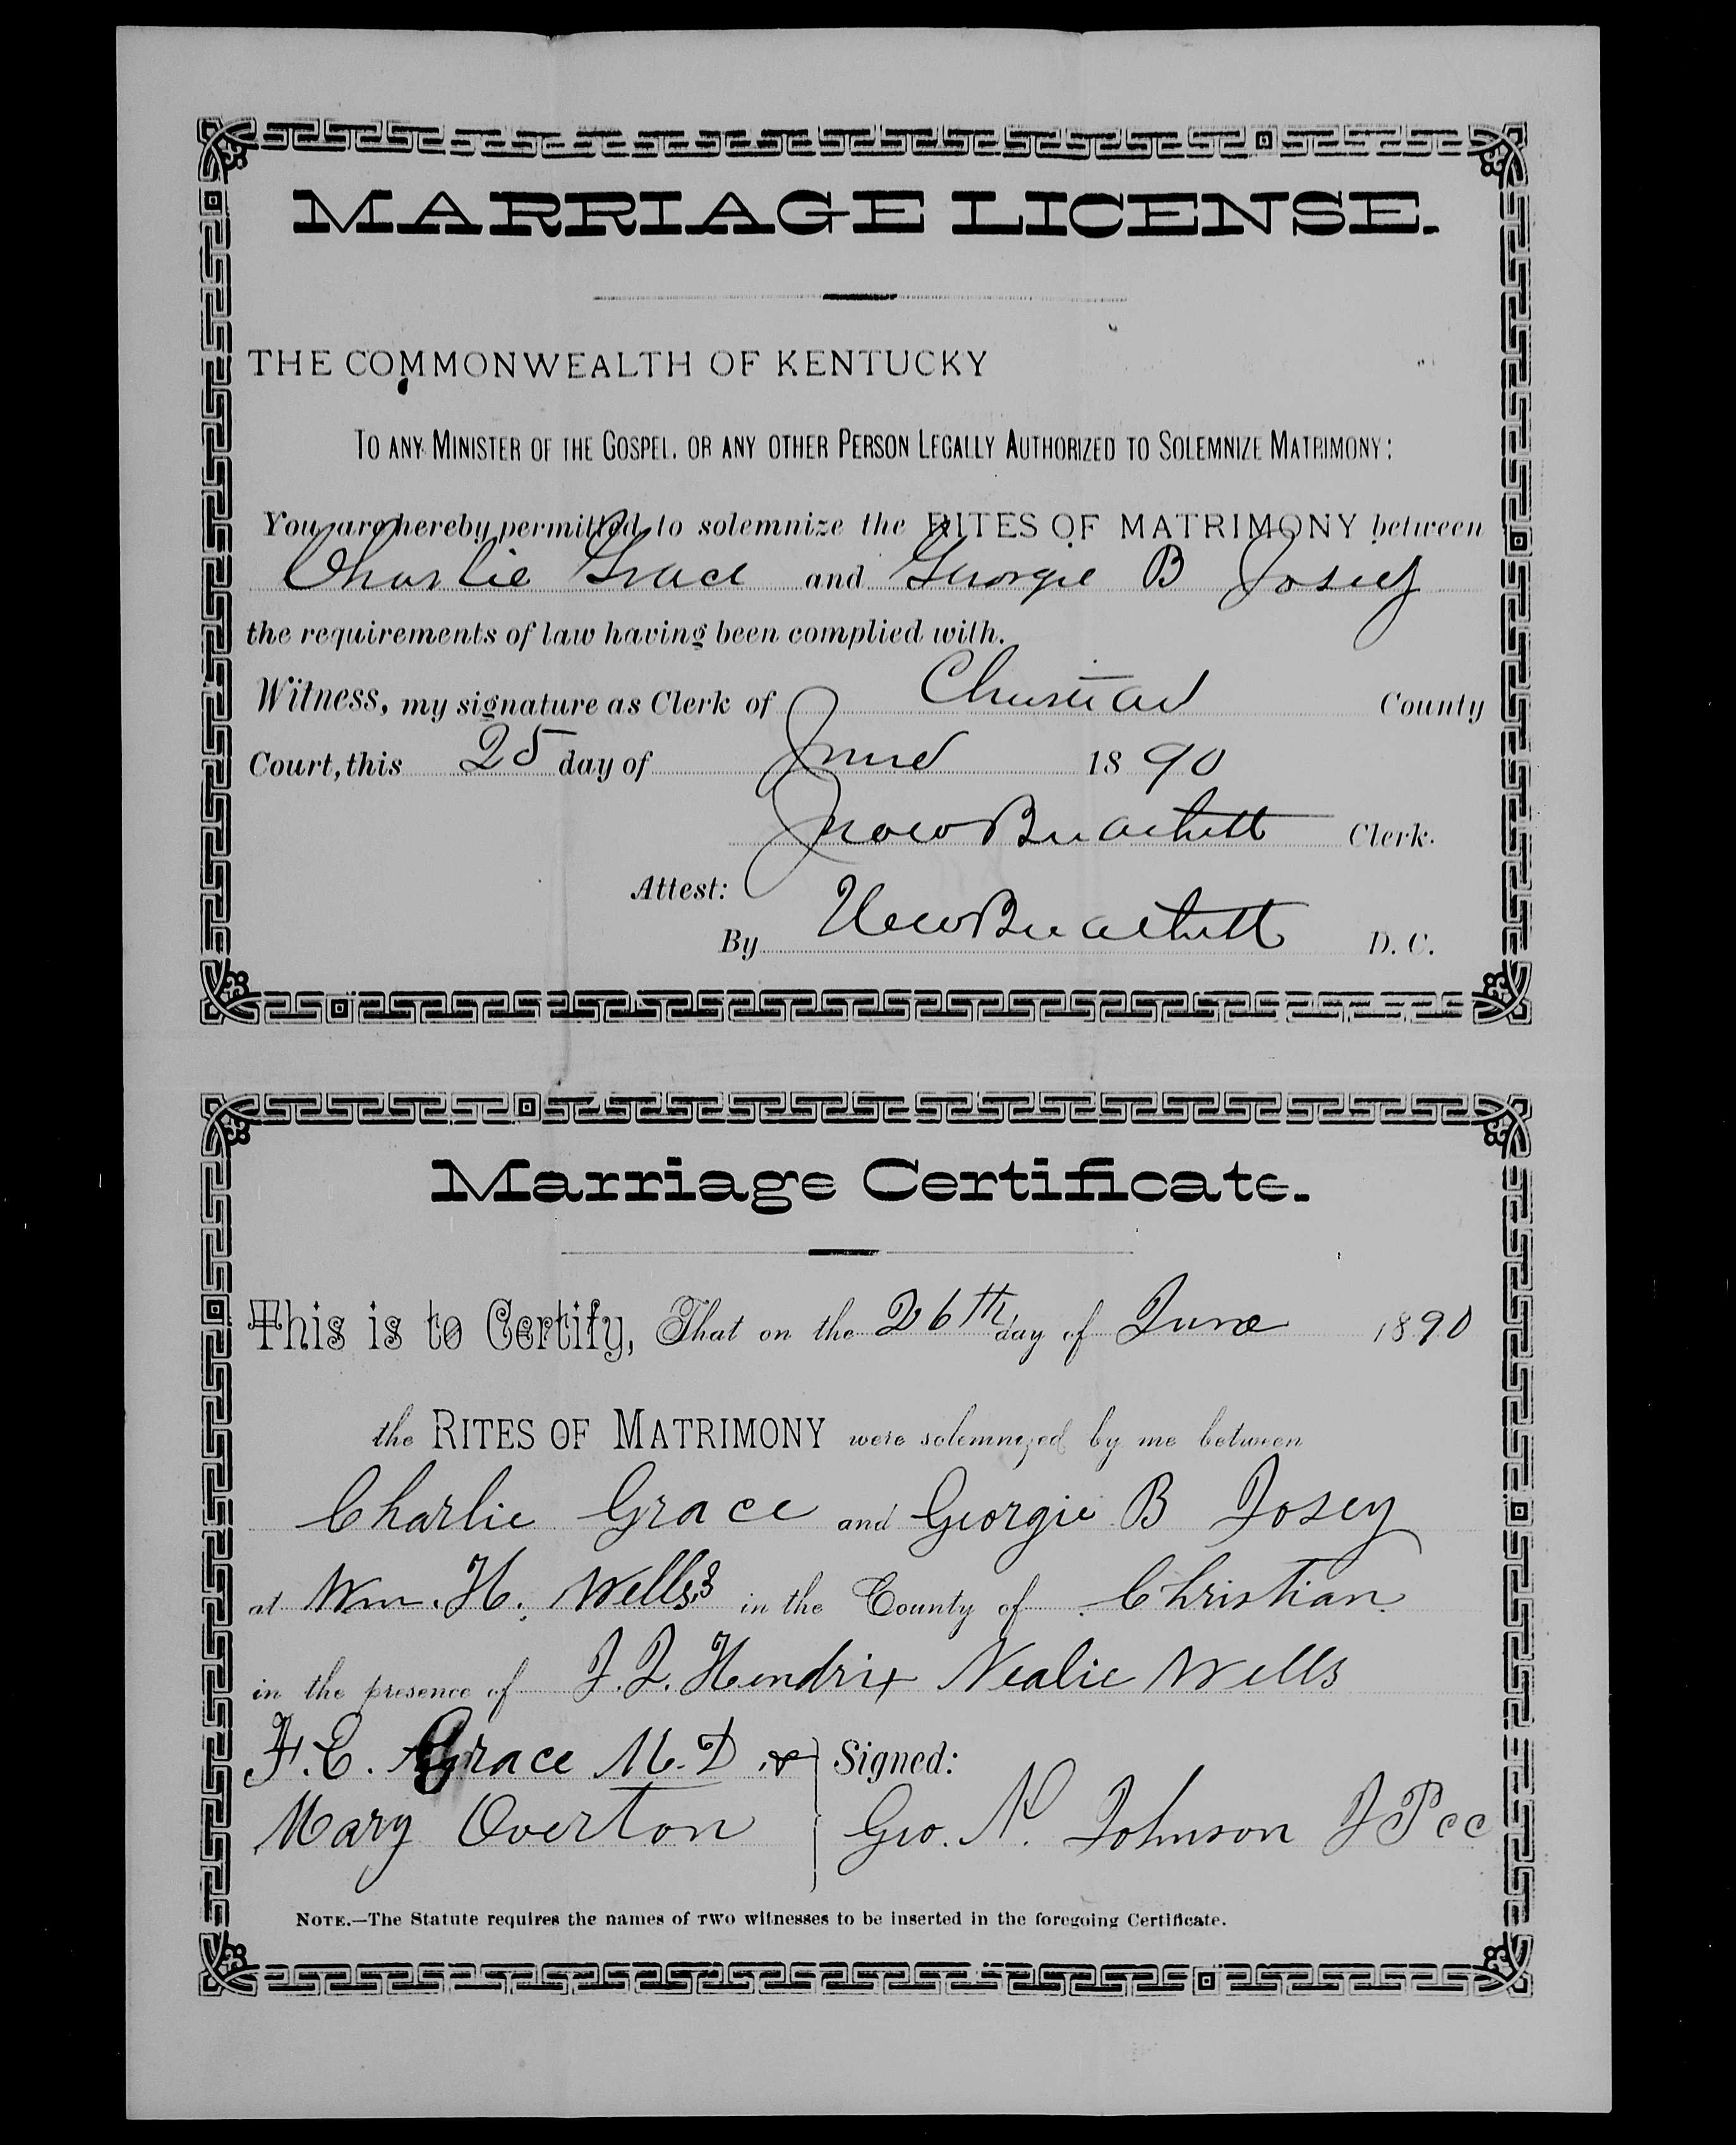 MARRIAGE LICENSE.
THE COMMONWEALTH OF KENTUCKY
TO ANY MINISTER OF THE GOSPEL, OR ANY OTHER PERSON LEGALLY AUTHORIZED TO SOLEMNIZE MATRIMONY:
You are hereby permitted to solemnize the RITES OF MATRIMONY between
Charlie Grace and Georgie B Josey
the requirements of law having been complied with.
Witness, my signature as Clerk of Christian County
Court, this 25 day of June 1890
Clerk.
Attest:
By D. C.
Marriage Certificate.
This is to Certify, That on the 26th day of June 1890
the RITES OF MATRIMONY were solemnized by me between
Charlie Grace and Georgie B Josey
at Wm. H. Wells's in the County of Christian
in the presence of J. J. Hendrix Nealie Wells
F. C. Grace M.D &
Signed:
Mary Overton
Geo. N. Johnson J P C C
NOTE.—The Statute requires the names of TWO witnesses to be inserted in the foregoing Certificate.